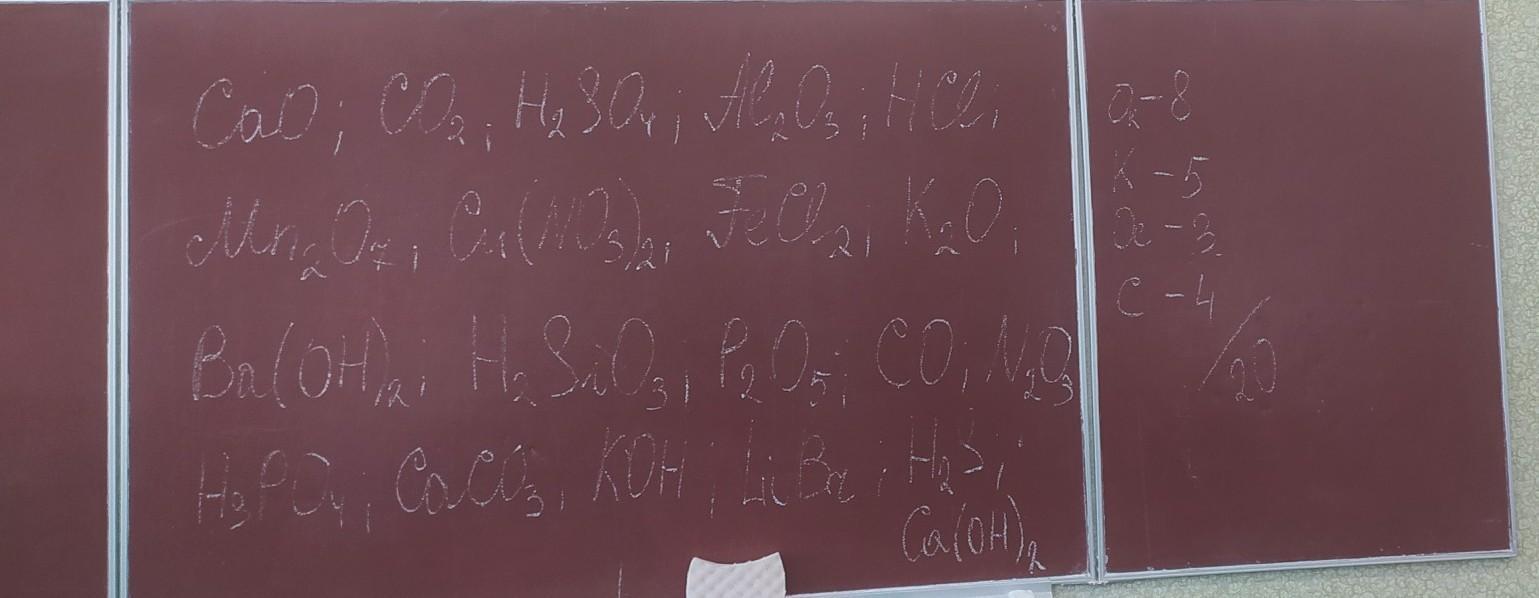 CaO; CO₂; H₂SO₄; Al₂O₃; HCl;
Mn₂O₇; Cu(NO₃)₂; FeCl₂; K₂O;
Ba(OH)₂; H₂SiO₃; P₂O₅; CO; N₂O₃
H₃PO₄; CaCO₃; KOH; LiBr; H₂S;
Ca(OH)₂
K - 5
C - 4
/20